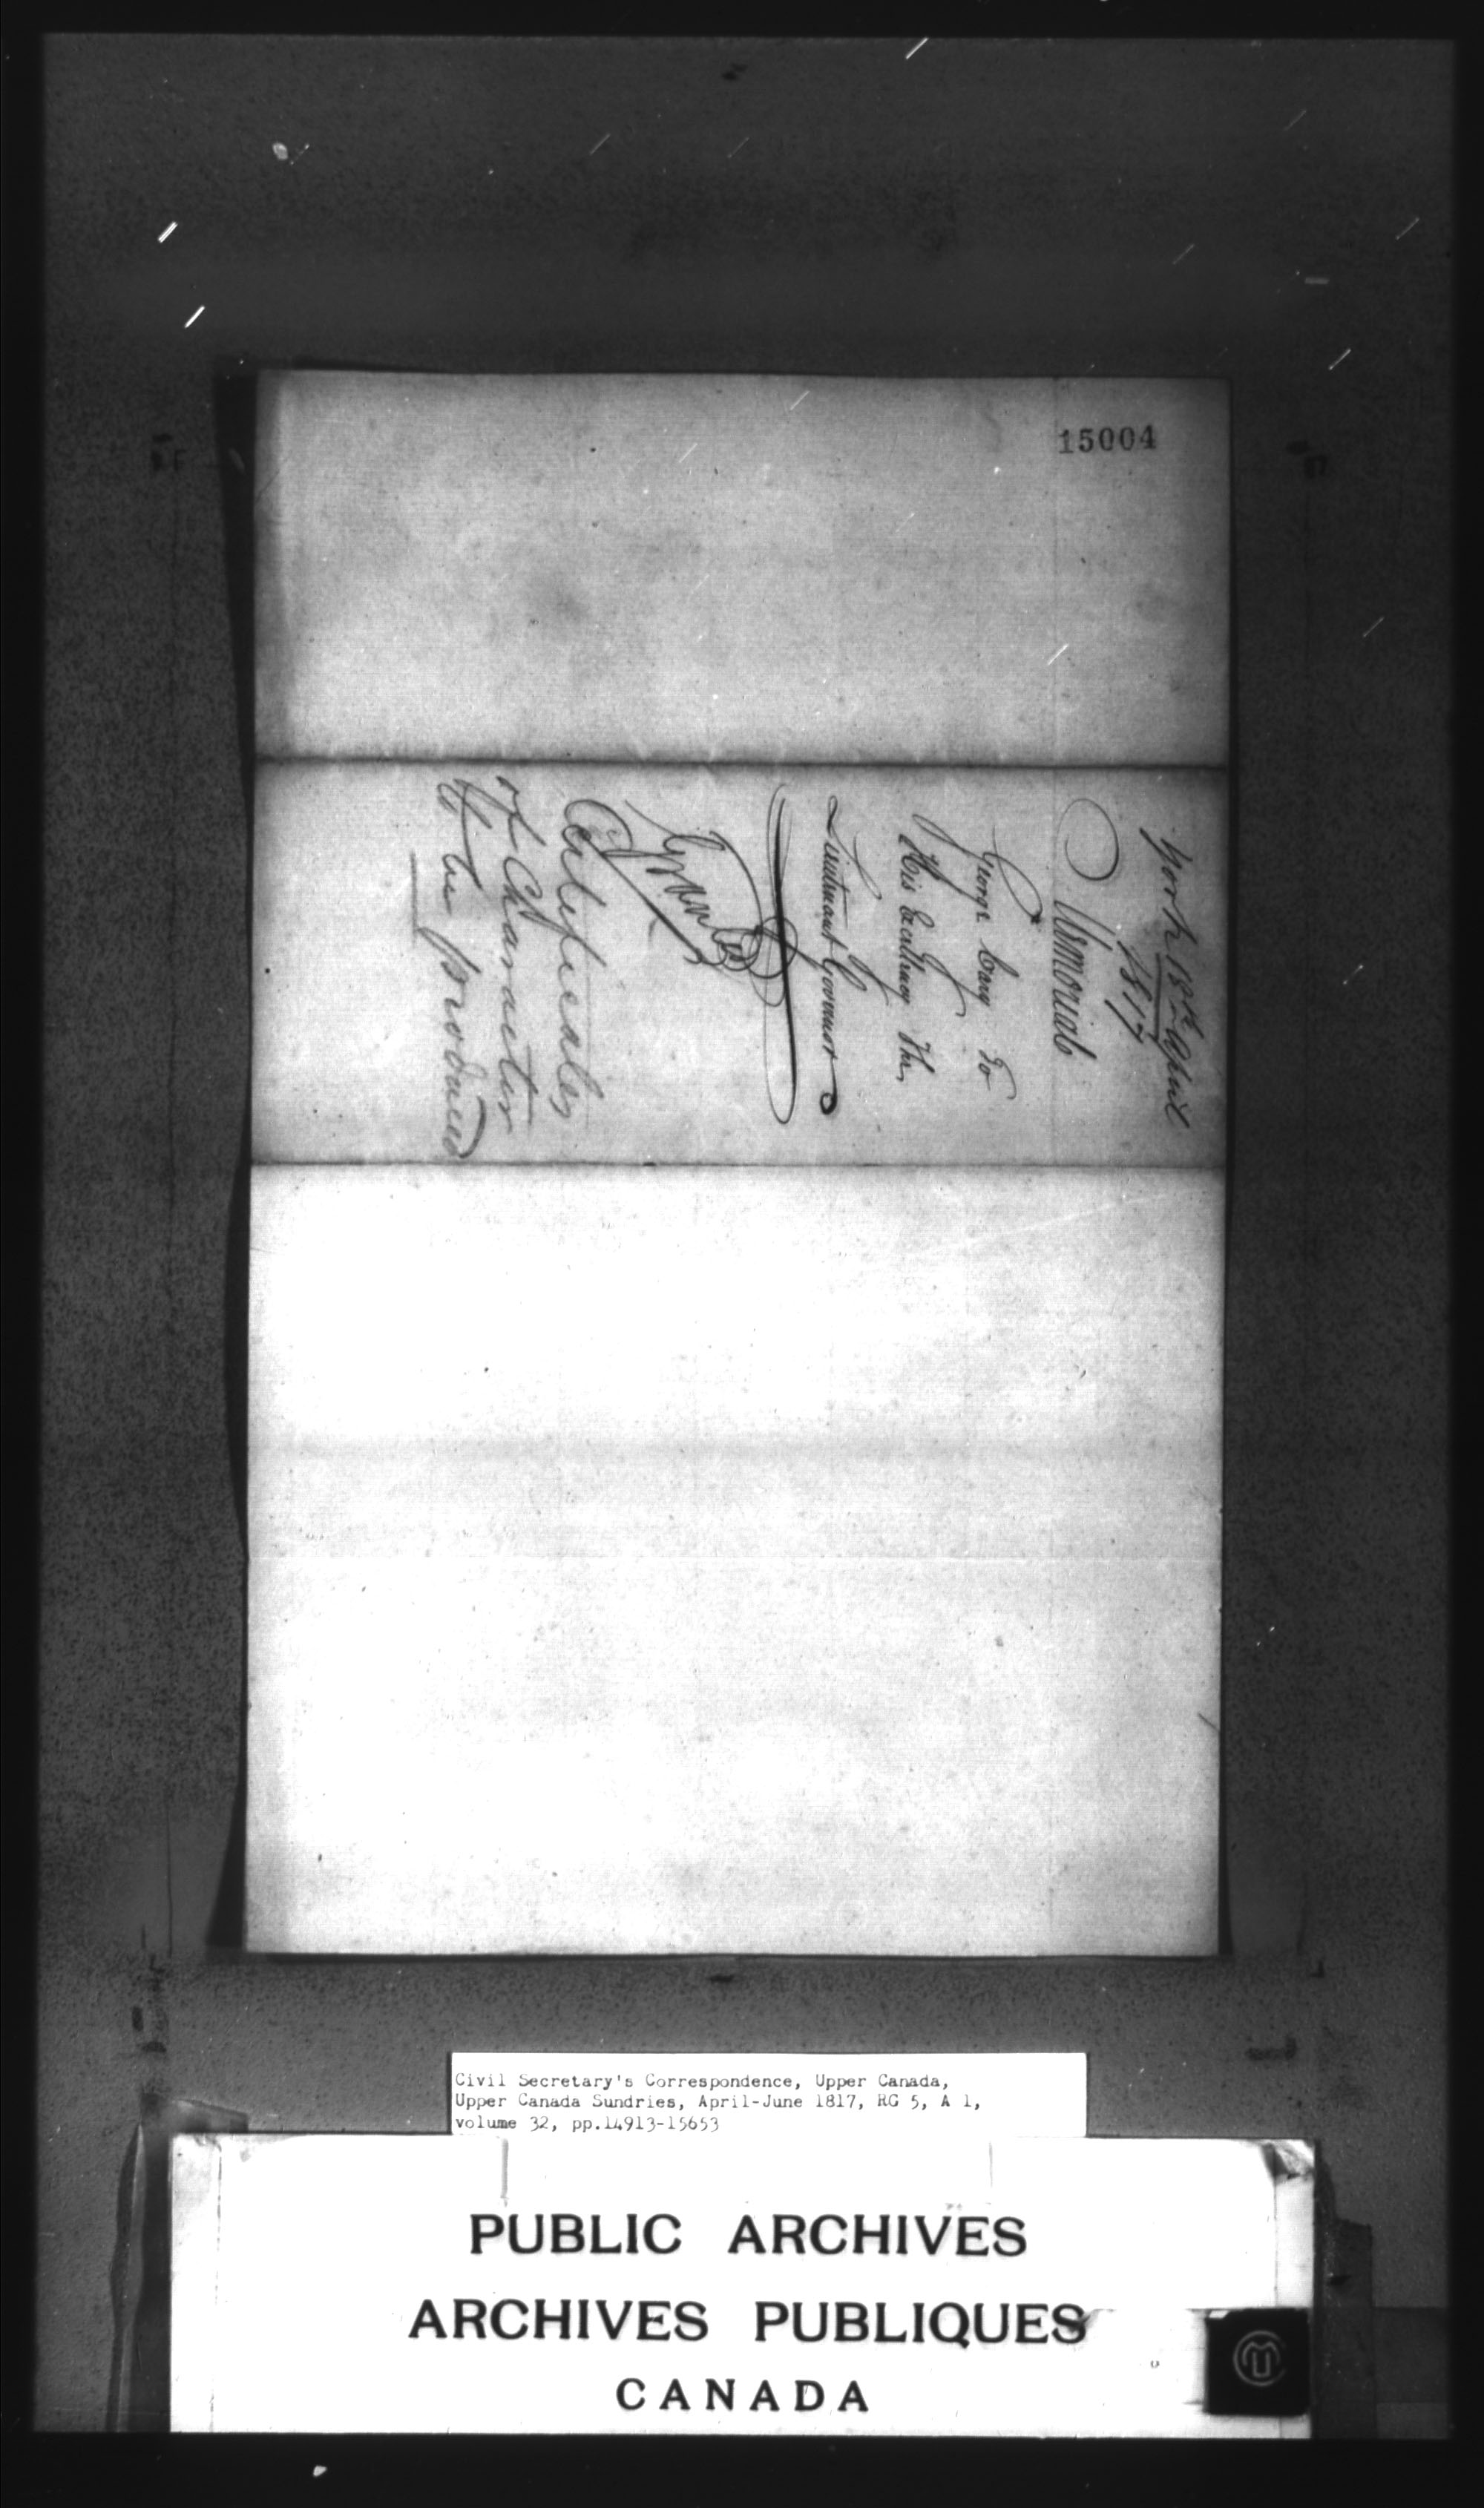 15004
York 18th April
1817
Memorial
George Cary To
His Excellency The
Lieutenant Governor
Granted
Certificates
of Character
to be produced
Civil Secretary's Correspondence, Upper Canada,
Upper Canada Sundries, April-June 1817, RG 5, A 1,
volume 32, pp.14913-15653
PUBLIC ARCHIVES
ARCHIVES PUBLIQUES
CANADA